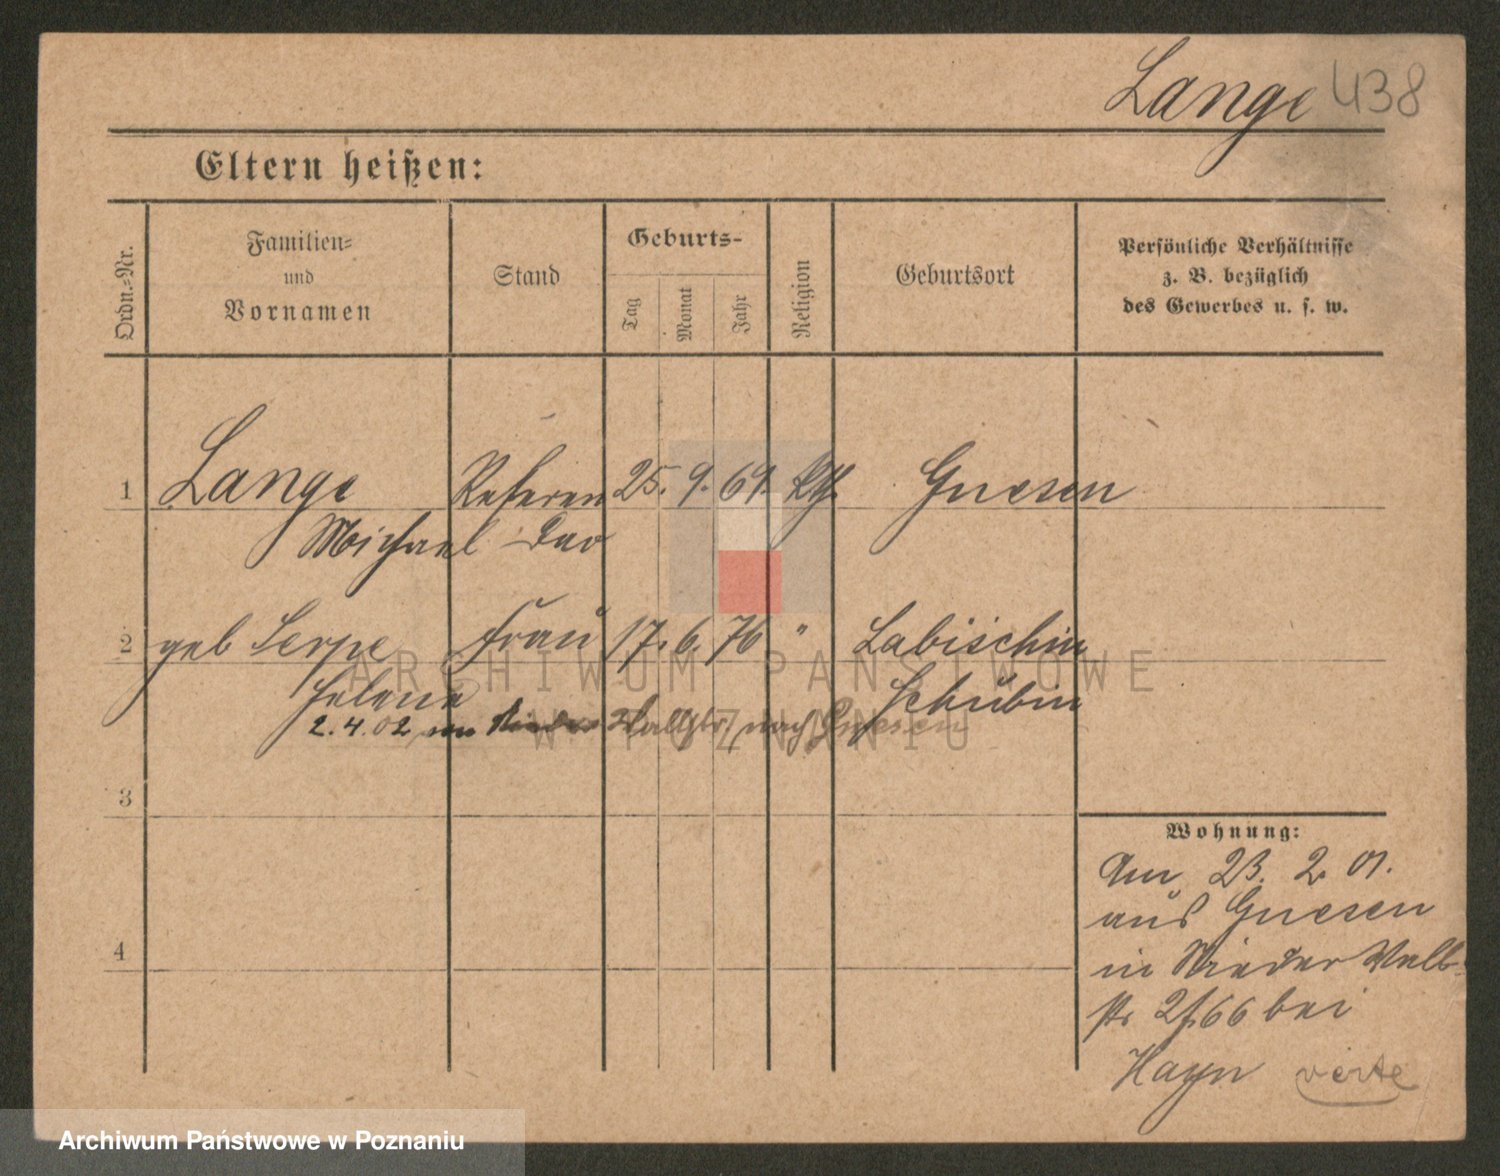 Lange 438
Eltern heißen:
Ordn.-Nr.
Familien-
und
Vornamen
Stand
Geburts-
Tag
Monat
Jahr
Religion
Geburtsort
Persönliche Verhältnisse
z. B. bezüglich
des Gewerbes u. s. w.
1 Lange Referen 25. 9. 69. kth. Gnesen
Michael dar
2 geb Serpe Frau 17. 6. 76 " Labischin
Helene Schubin
2.4.02 nach Gnesen
3
4
Wohnung:
Am 23. 2. 01.
aus Gnesen
in Nieder Wall-
str 2 bei
Hayn verte
ARCHIWUM PAŃSTWOWE
W POZNANIU
Archiwum Państwowe w Poznaniu